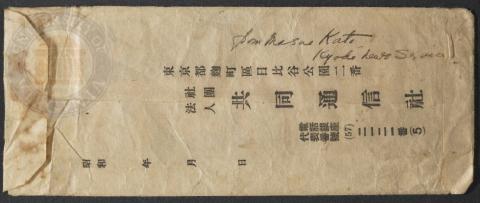 from Masuo Kato
Kyodo News Service
東京都麹町區日比谷公園二番
社團
法人
共同通信社
電話銀座
代表番號
(57)
二二二二番
(5)
昭和 年 月 日